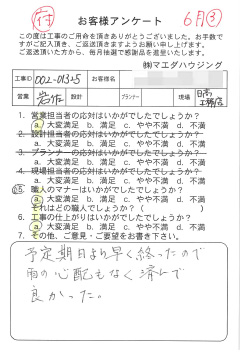 付
6月③
お客様アンケート
この度は工事のご用命を頂きありがとうございました。お手数で
すがご記入頂き、ご返送頂きますようお願い申し上げます。
ご返送頂いた方から、毎月抽選で感謝品を進呈いたします。
㈱マエダハウジング
工事ID 002-01325 お客様名
営業 岩佐 設計 プランナー 現場
1. 営業担当者の応対はいかがでしたでしょうか?
a. 大変満足 b. 満足 c. やや不満 d. 不満
2. 設計担当者の応対はいかがでしたでしょうか?
a. 大変満足 b. 満足 c. やや不満 d. 不満
3. プランナーの応対はいかがでしたでしょうか?
a. 大変満足 b. 満足 c. やや不満 d. 不満
4. 現場担当者の応対はいかがでしたでしょうか?
a. 大変満足 b. 満足 c. やや不満 d. 不満
5. 職人のマナーはいかがでしたでしょうか?
a. 大変満足 b. 満足 c. やや不満 d. 不満
それはどの職人でしょうか?( )
6. 工事の仕上がりはいかがでしたでしょうか?
a. 大変満足 b. 満足 c. やや不満 d. 不満
7. その他、ご意見・ご要望をお書き下さい。
予定期日より早く終ったので
雨の心配もなく済んで
良かった。